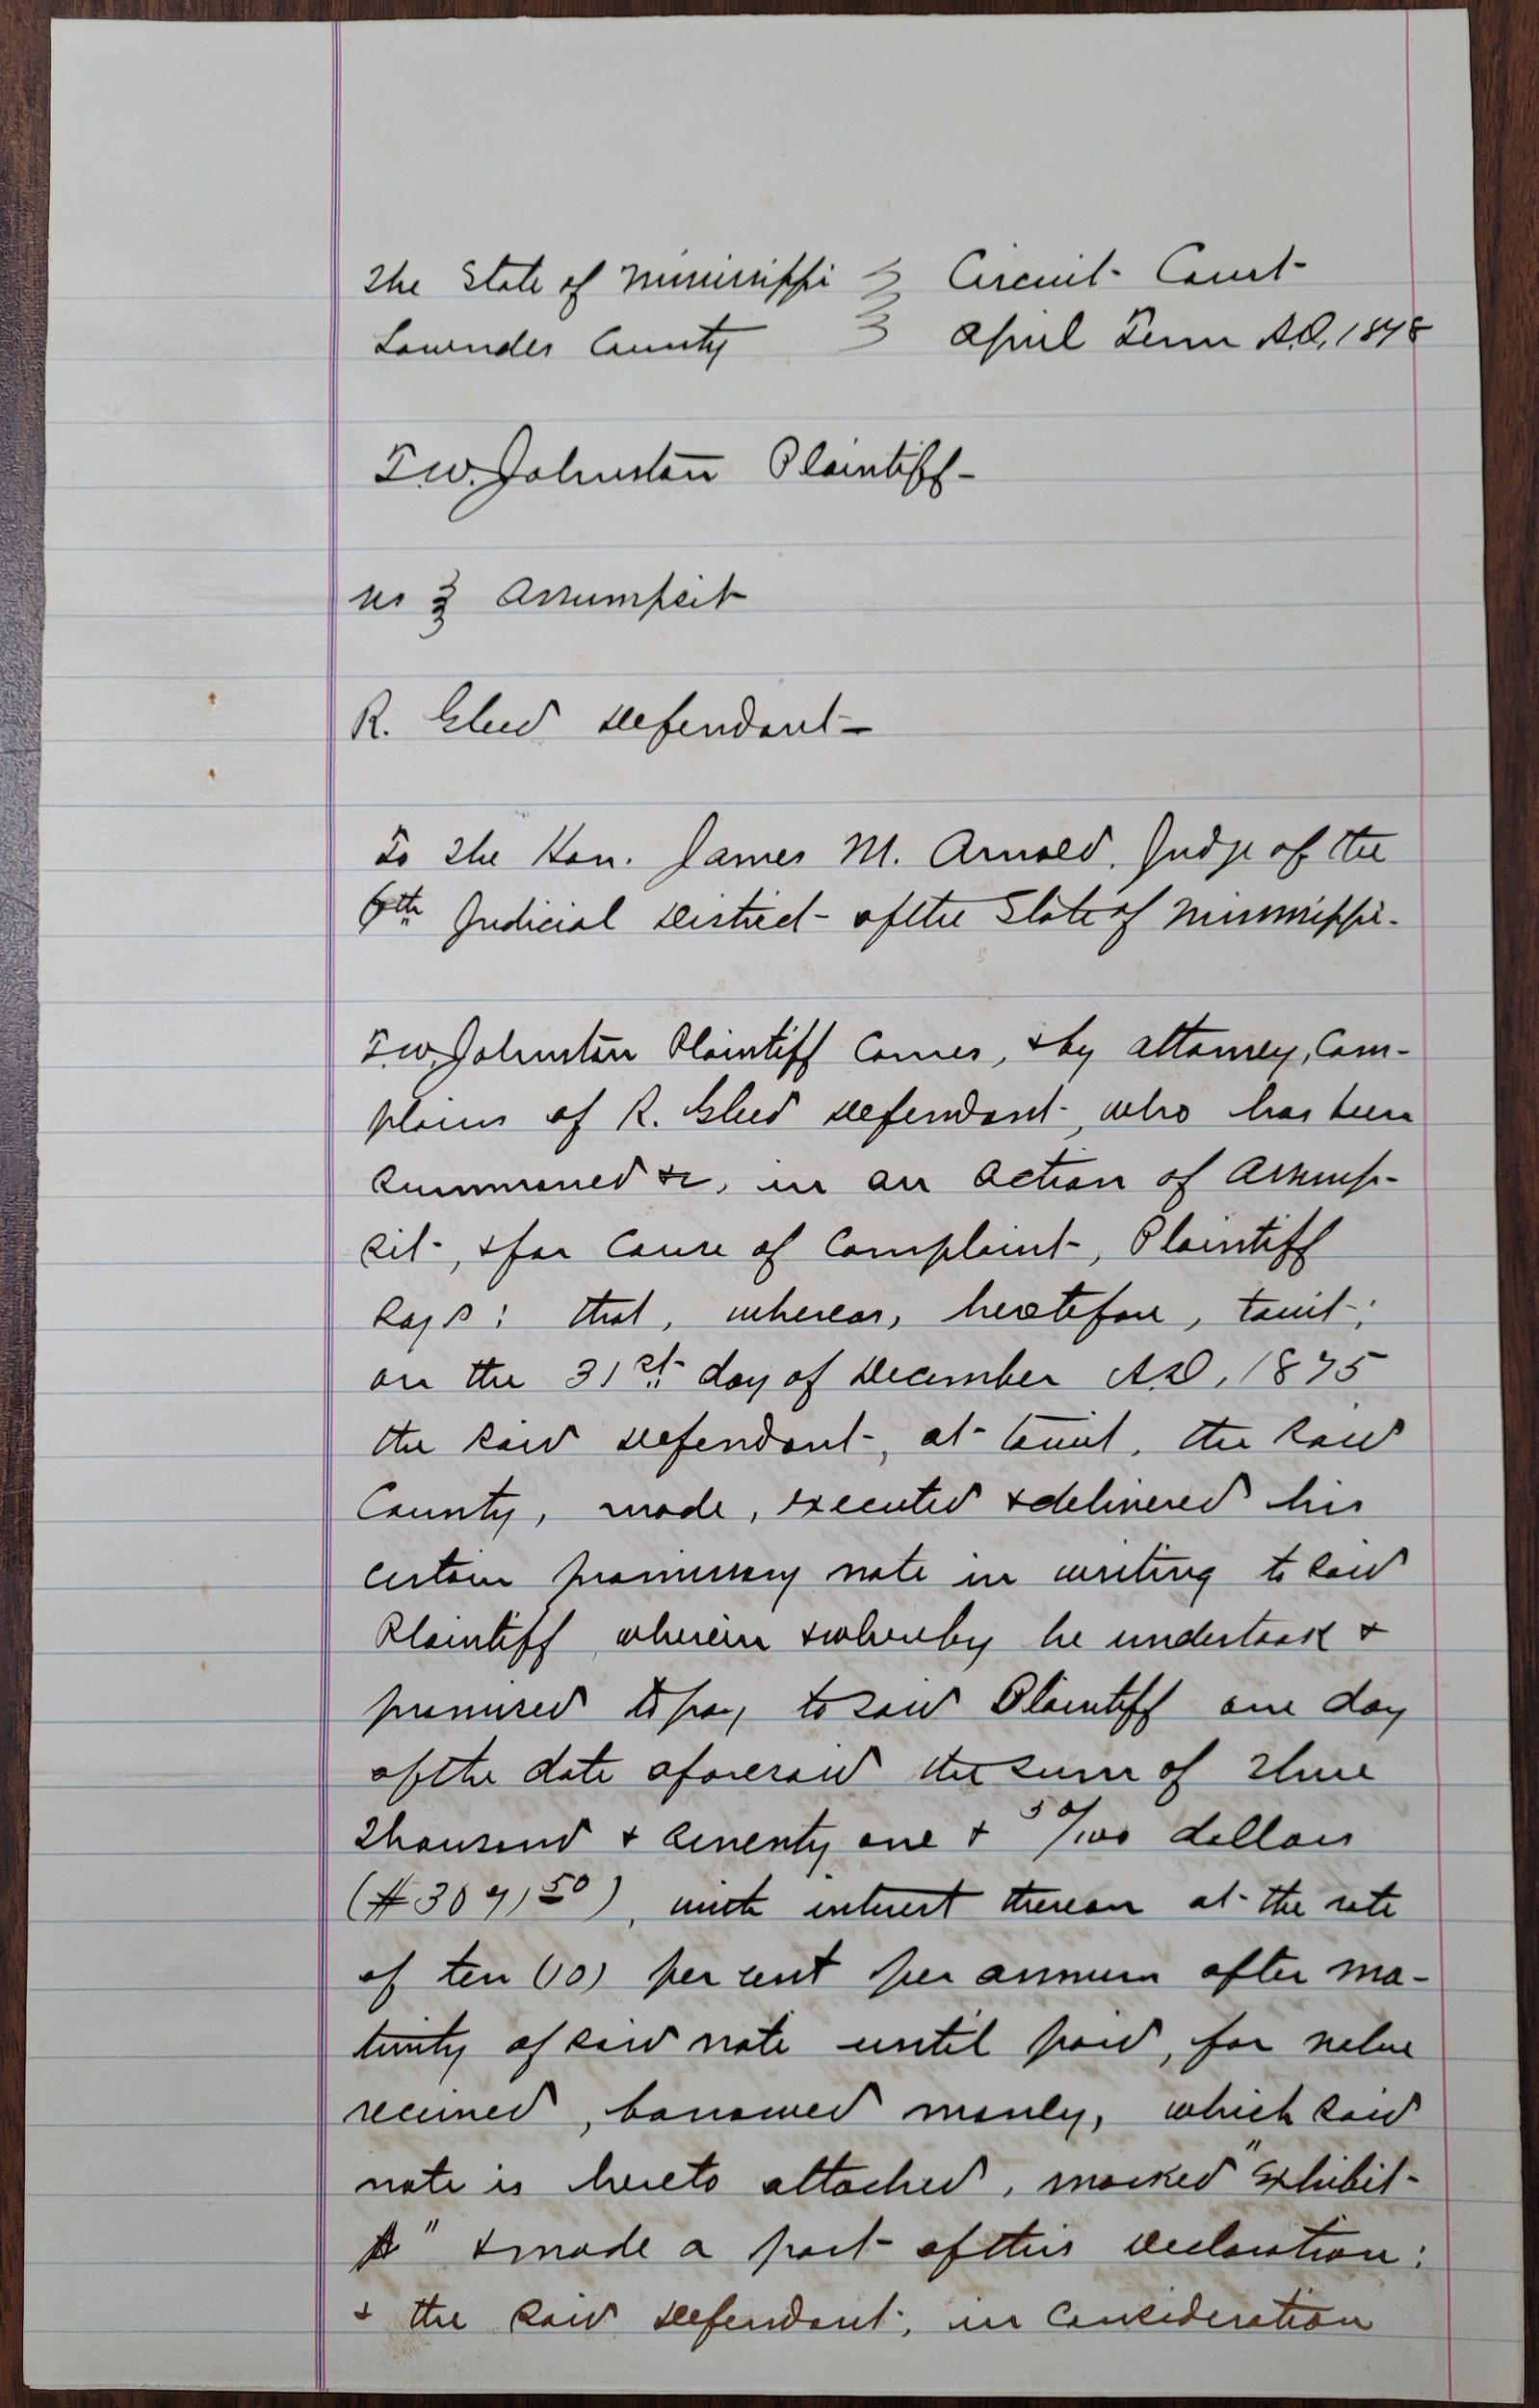 The State of Mississippi } Circuit Court
Lowndes County } April Term A.D. 1878
T.W. Johnston Plaintiff
vs } Assumpsit
R. Gleed Defendant
To The Hon. James M. Arnold, Judge of the
6th Judicial District of the State of Mississippi.
T.W. Johnston Plaintiff comes, & by attorney, com-
plains of R. Gleed Defendant, who has been
summoned &c, in an action of assump-
sit, & for cause of complaint, Plaintiff
says: that, whereas, heretofore, towit;
on the 31st day of December A.D, 1875
the said Defendant, at towit, the said
County, made, executed & delivered his
certain promissory note in writing to said
Plaintiff, wherein & whereby he undertook &
promised to pay to said Plaintiff one day
of the date aforesaid the sum of Three
Thousand & seventy one & 50/100 dollars
($3071 50), with interest thereon at the rate
of ten (10) per cent per annum after ma-
turity of said note until paid, for value
received, borrowed money, which said
note is hereto attached, marked "Exhibit
A" & made a part of this Declaration:
& the said Defendant, in consideration